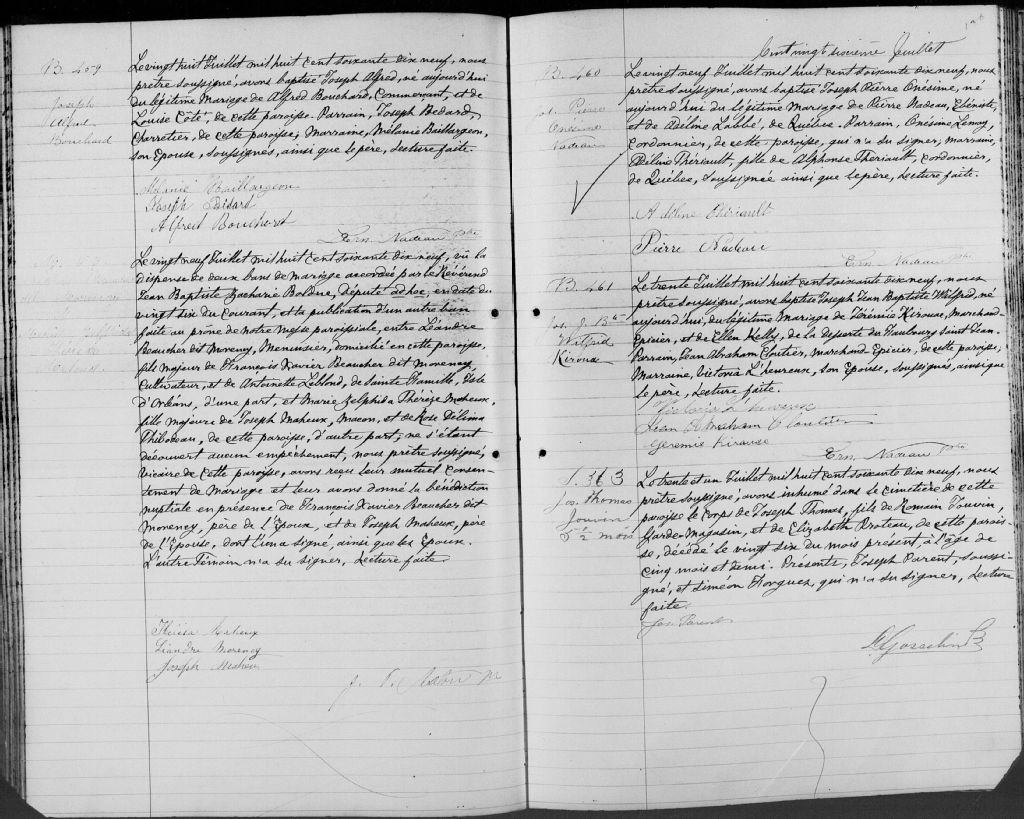 B. 459
Joseph
Alfred
Bouchard
Le vingt huit Juillet mil huit cent soixante dix neuf, nous
prêtre soussigné, avons baptisé Joseph Alfred, né aujourd'hui
du légitime Mariage de Alfred Bouchard, Commerçant, et de
Louise Côté, de cette paroisse. Parrain, Joseph Bédard,
Charretier, de cette paroisse; Marraine, Mélanie Baillargeon,
son Epouse, soussignés, ainsi que le père, Lecture faite.
Mélanie Baillargeon
Joseph Bédard
Alfred Bouchard
Ern. Nadeau Ptre
Le vingt neuf Juillet mil huit cent soixante dix neuf, vu la
dispense de deux bans de mariage accordée par le Révérend
Jean Baptiste Zacharie Bolduc, Député ad hoc, en date du
vingt six du Courant, et la publication d'un autre ban
faite au prône de notre Messe paroissiale, entre Léandre
Beaucher dit Morency, Menuisier, domicilié en cette paroisse,
fils majeur de François Xavier Beaucher dit Morency,
Cultivateur, et de Antoinette Leblond, de Sainte Famille, Isle
D'Orléans, d'une part, et Marie Zelphida Thérèse Maheux,
fille majeure de Joseph Maheux, Maçon, et de Rose Délima
Thibodeau, de cette paroisse, d'autre part; ne s'étant
découvert aucun empêchement, nous prêtre soussigné,
Vicaire de cette paroisse, avons reçu leur mutuel consen-
tement de Mariage et leur avons donné la bénédiction
nuptiale en présence de François Xavier Beaucher dit
Morency, père de L'Epoux, et de Joseph Maheux, père
de L'Epouse, dont l'un a signé, ainsi que les Epoux.
L'autre Témoin n'a su signer, Lecture faite
Thérèsa Maheux
Léandre Morency
Joseph Maheux
Cent vingt sixième Feuillet
B. 460
Jos. Pierre
Onésime
Nadeau
Le vingt neuf Juillet mil huit cent soixante dix neuf, nous
prêtre soussigné, avons baptisé Joseph Pierre Onésime, né
aujourd'hui du légitime Mariage de Pierre Nadeau, Ebéniste,
et de Adéline Labbé, de Québec. Parrain, Onésime Lemay,
Cordonnier, de cette paroisse, qui n'a su signer, marraine,
Adéline Thériault, fille de Alphonse Thériault, Cordonnier,
de Québec, soussignée ainsi que le père, Lecture faite.
Adéline Thériault
Pierre Nadeau
Ern. Nadeau Ptre
B. 461
Jos. J. Bte
Wilfrid
Kiroua
Le trente Juillet mil huit cent soixante dix neuf, nous
prêtre soussigné, avons baptisé Joseph Jean Baptiste Wilfred, né
aujourd'hui, du légitime Mariage de Jérémie Kirouac, Marchand-
Epicier, et de Ellen Kelly, de la desserte du Faubourg Saint Jean.
Parrain, Jean Abraham Cloutier, Marchand Epicier, de cette paroisse,
Marraine, Victoria L'heureux, son Epouse, soussignés, ainsi que
le père, Lecture faite.
Victoria L'heureux
Jean Abraham Cloutier
Geremie Kirouac
Ern. Nadeau Ptre
S. 363
Jos. Thomas
Jouvin
5 1/2 mois
Le trente et un Juillet mil huit cent soixante dix neuf, nous
prêtre soussigné, avons inhumé dans le cimetière de cette
paroisse le corps de Joseph Thomas, fils de Romain Jouvin,
Garde-Magasin, et de Elizabeth Proteau, de cette parois-
se, décédé le vingt six du mois présent, à l'âge de
cinq mois et demi. Présents, Joseph Parent, soussi-
gné, et Siméon Thorgues, qui n'a su signer, Lecture
faite.
Jos. Parent
Gosselin